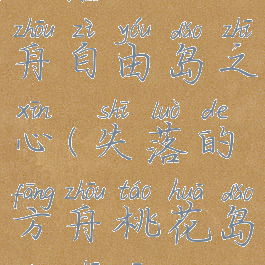 zhōu zì yóu dǎo zhī
舟自由岛之
xīn shī luò de
心(失落的
fāng zhōu táo huā dǎo
方舟桃花岛